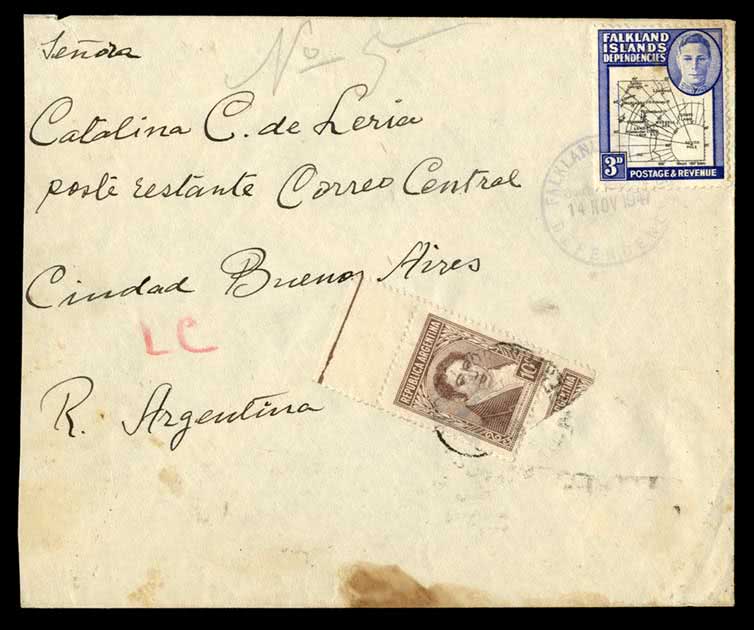 Señora
No 5
Catalina C. de Leria
poste restante Correo Central
Ciudad Buenos Aires
LC
R. Argentina
FALKLAND
ISLANDS
DEPENDENCIES
3D
POSTAGE & REVENUE
FALKLAND
14 NOV 1947
DEPENDEN
REPUBLICA ARGENTINA
10